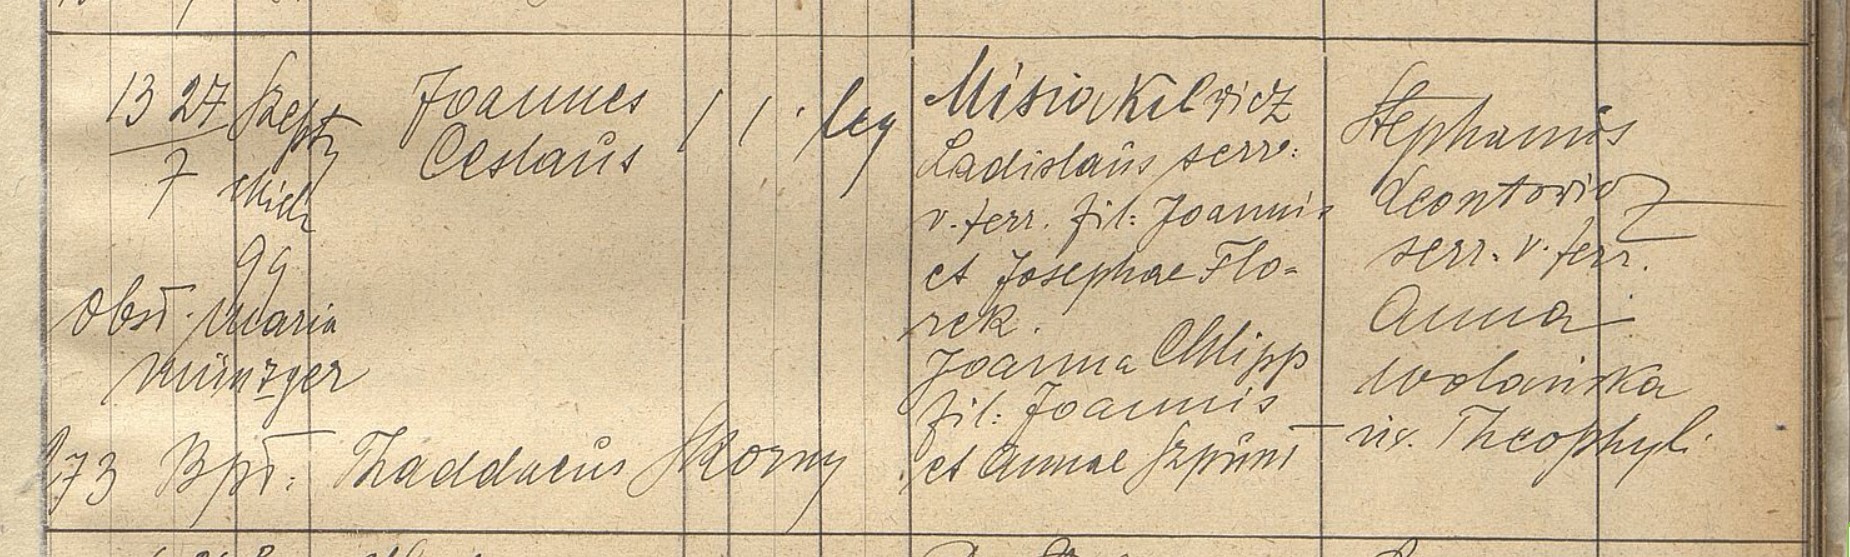 13 27 Szept
7 Mich
99
Obst. Maria
Münzger
173 Bpt. Thaddaeus Skorny
Joannes
Ceslaus
1 1 leg
Misiakiewicz
Ladislaus serv.
v. ferr. fil: Joannis
et Josephae Flo-
rek.
Joanna Chlipp
fil: Joannis
et Annae Szpunt
Stephanus
Leontowicz
serv. v. ferr.
Anna
Wolańska
ux. Theophyli